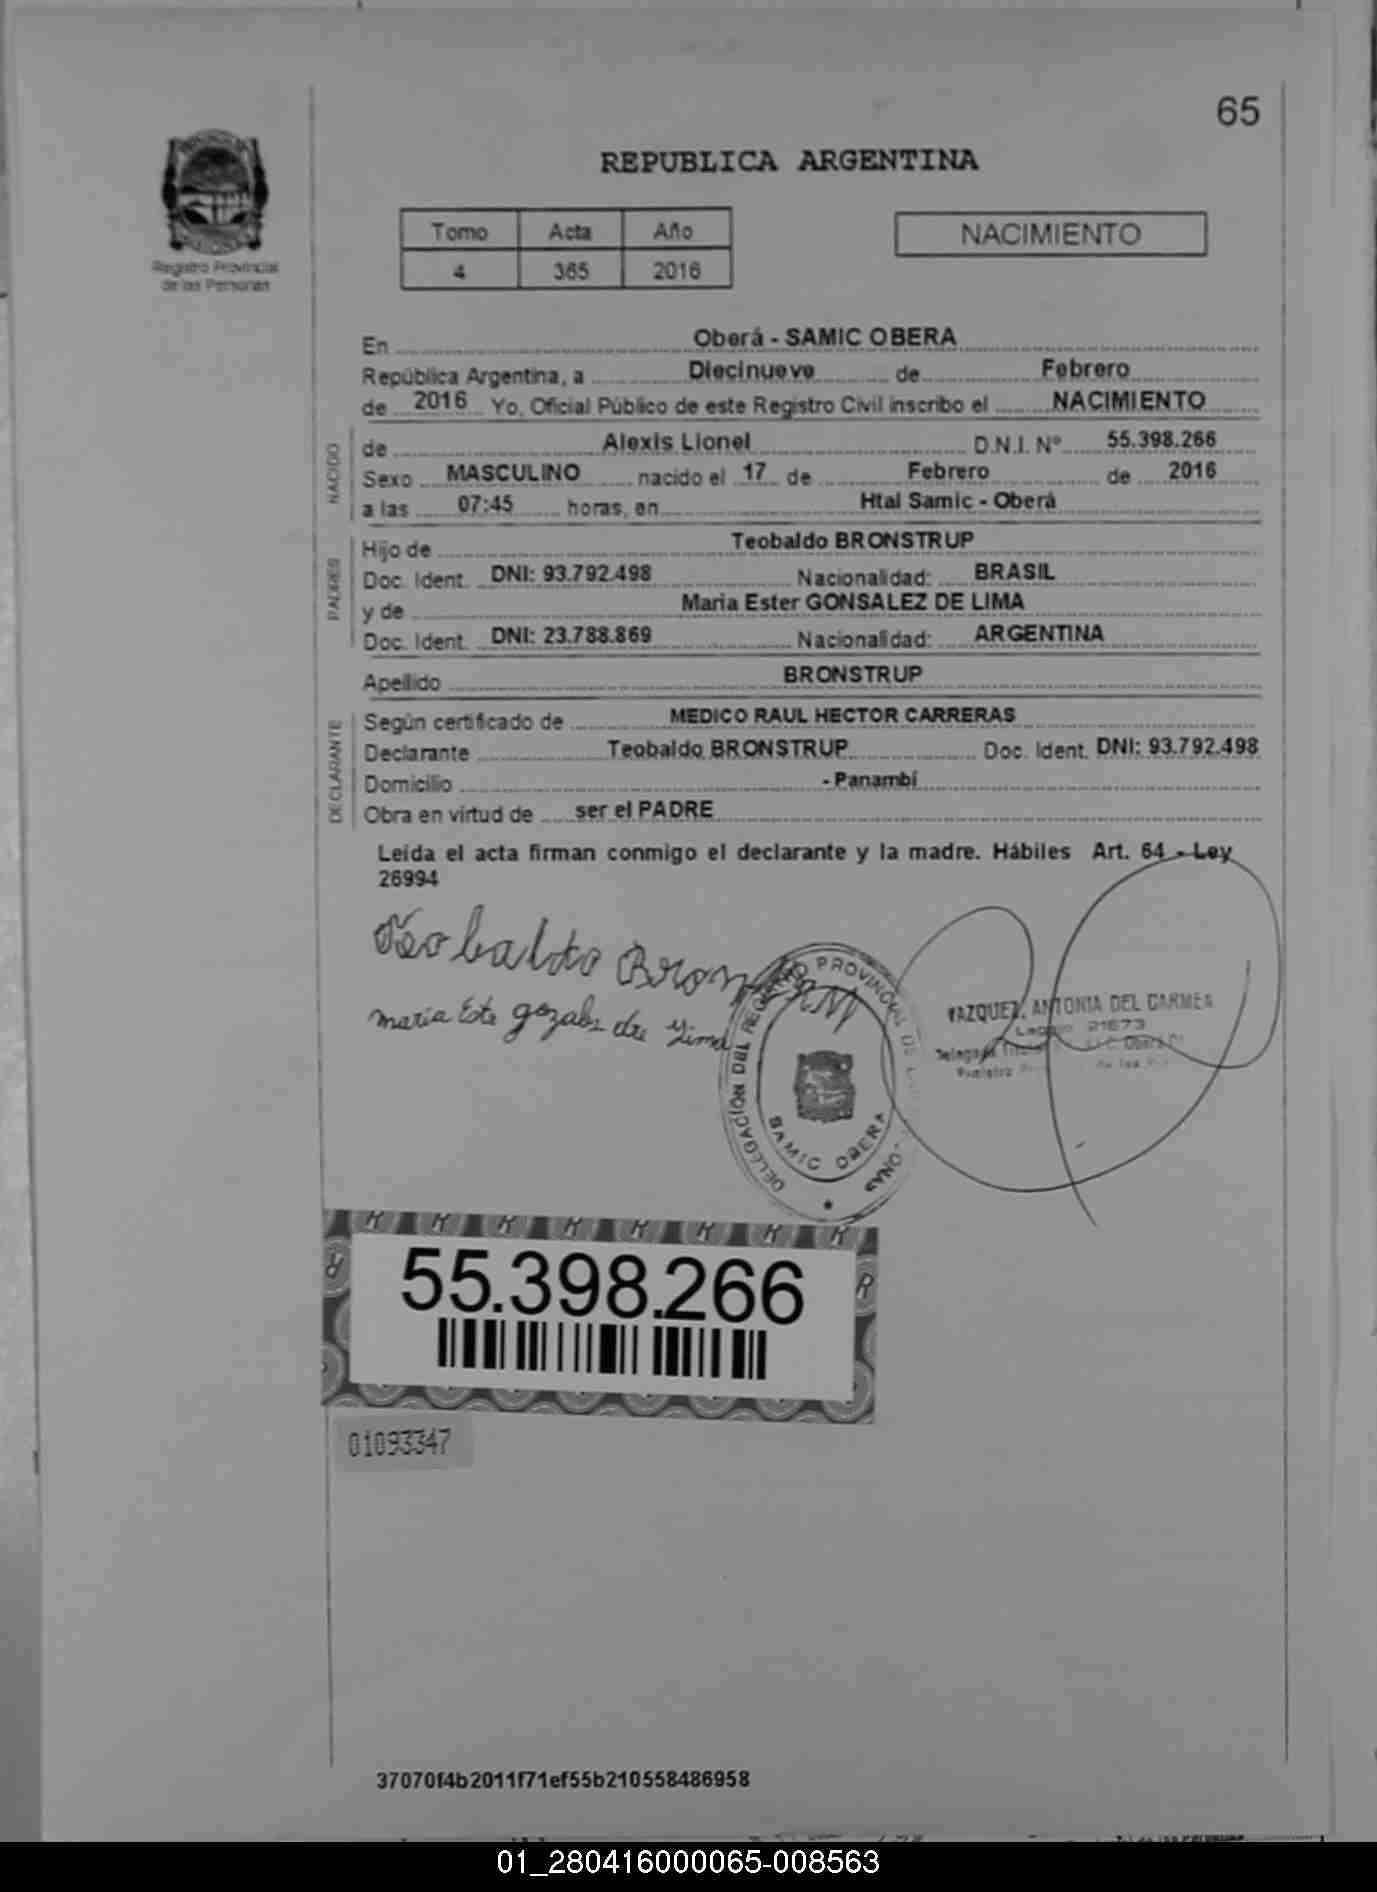 65
REPUBLICA ARGENTINA
Registro Provincial
de las Personas
Tomo Acta Año
4 365 2016
NACIMIENTO
En Oberá - SAMIC OBERA
República Argentina, a Diecinueve de Febrero
de 2016 Yo, Oficial Público de este Registro Civil inscribo el NACIMIENTO
NACIDO
de Alexis Lionel D.N.I. Nº 55.398.266
Sexo MASCULINO nacido el 17 de Febrero de 2016
a las 07:45 horas, en Htal Samic - Oberá
PADRES
Hijo de Teobaldo BRONSTRUP
Doc. Ident. DNI: 93.792.498 Nacionalidad: BRASIL
y de Maria Ester GONSALEZ DE LIMA
Doc. Ident. DNI: 23.788.869 Nacionalidad: ARGENTINA
Apellido BRONSTRUP
DECLARANTE
Según certificado de MEDICO RAUL HECTOR CARRERAS
Declarante Teobaldo BRONSTRUP Doc. Ident. DNI: 93.792.498
Domicilio - Panambí
Obra en virtud de ser el PADRE
Leída el acta firman conmigo el declarante y la madre. Hábiles Art. 64 - Ley
26994
Teobaldo
maria
DELEGACIÓN DEL REGISTRO PROVINCIAL DE
SAMIC OBERA
VAZQUEZ, ANTONIA DEL CARMEN
21673
55.398.266
01093347
37070f4b2011f71ef55b210558486958
01_280416000065-008563